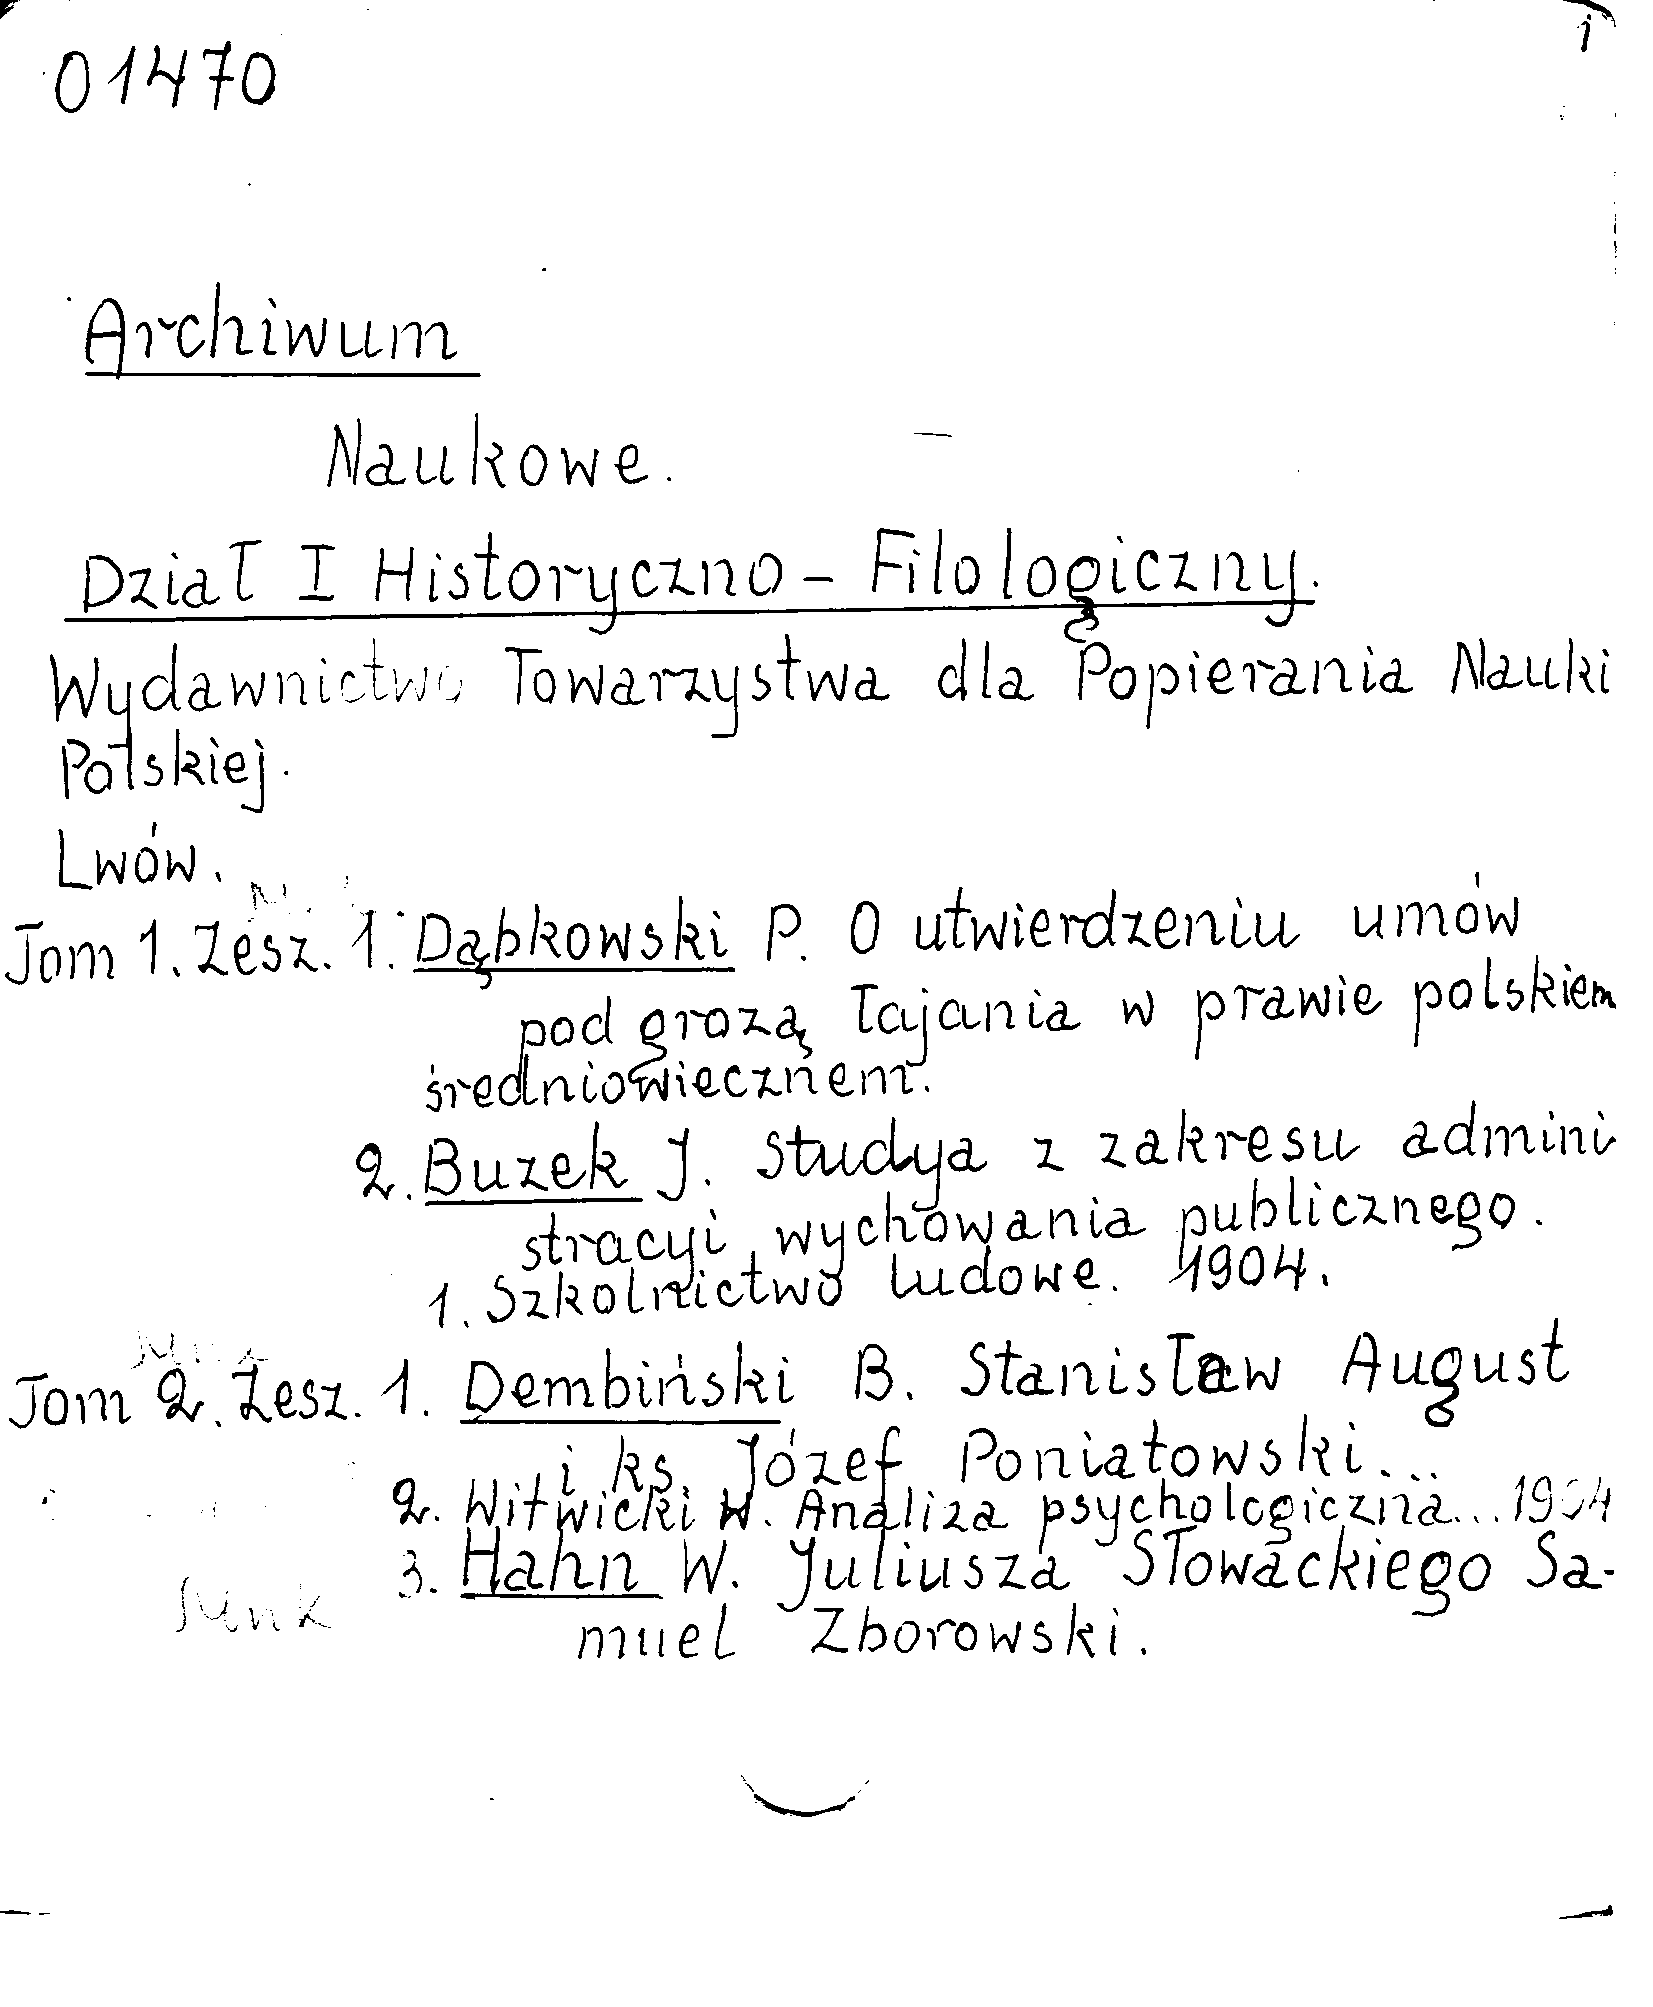 01470
Archiwum
Naukowe.
Dział I Historyczno-Filologiczny.
Wydawnictwo Towarzystwa dla Popierania Nauki
Polskiej.
Lwów.
Tom 1. Zesz. 1. Dąbkowski P. O utwierdzeniu umów
pod grozą łajania w prawie polskiem
średniowiecznem.
2. Buzek J. Studya z zakresu admini
stracyi wychowania publicznego.
1. Szkolnictwo ludowe. 1904.
Tom 2. Zesz. 1. Dembiński B. Stanisław August
i ks. Józef Poniatowski...
2. Witwicki W. Analiza psychologiczna... 1904
3. Hahn W. Juliusza Słowackiego Sa-
muel Zborowski.